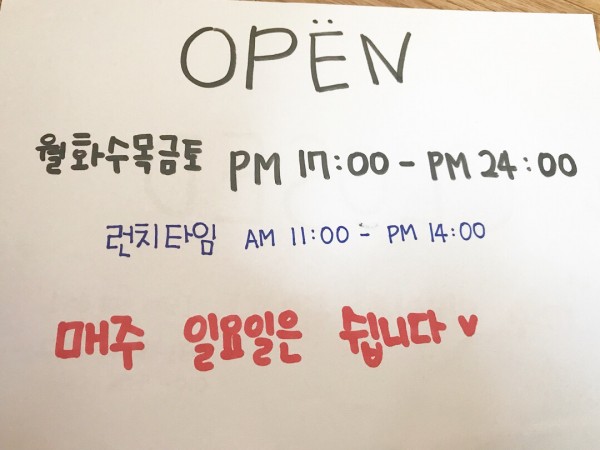 OPËN
월화수목금토 PM 17:00 - PM 24:00
런치타임 AM 11:00 - PM 14:00
매주 일요일은 쉽니다 ♥